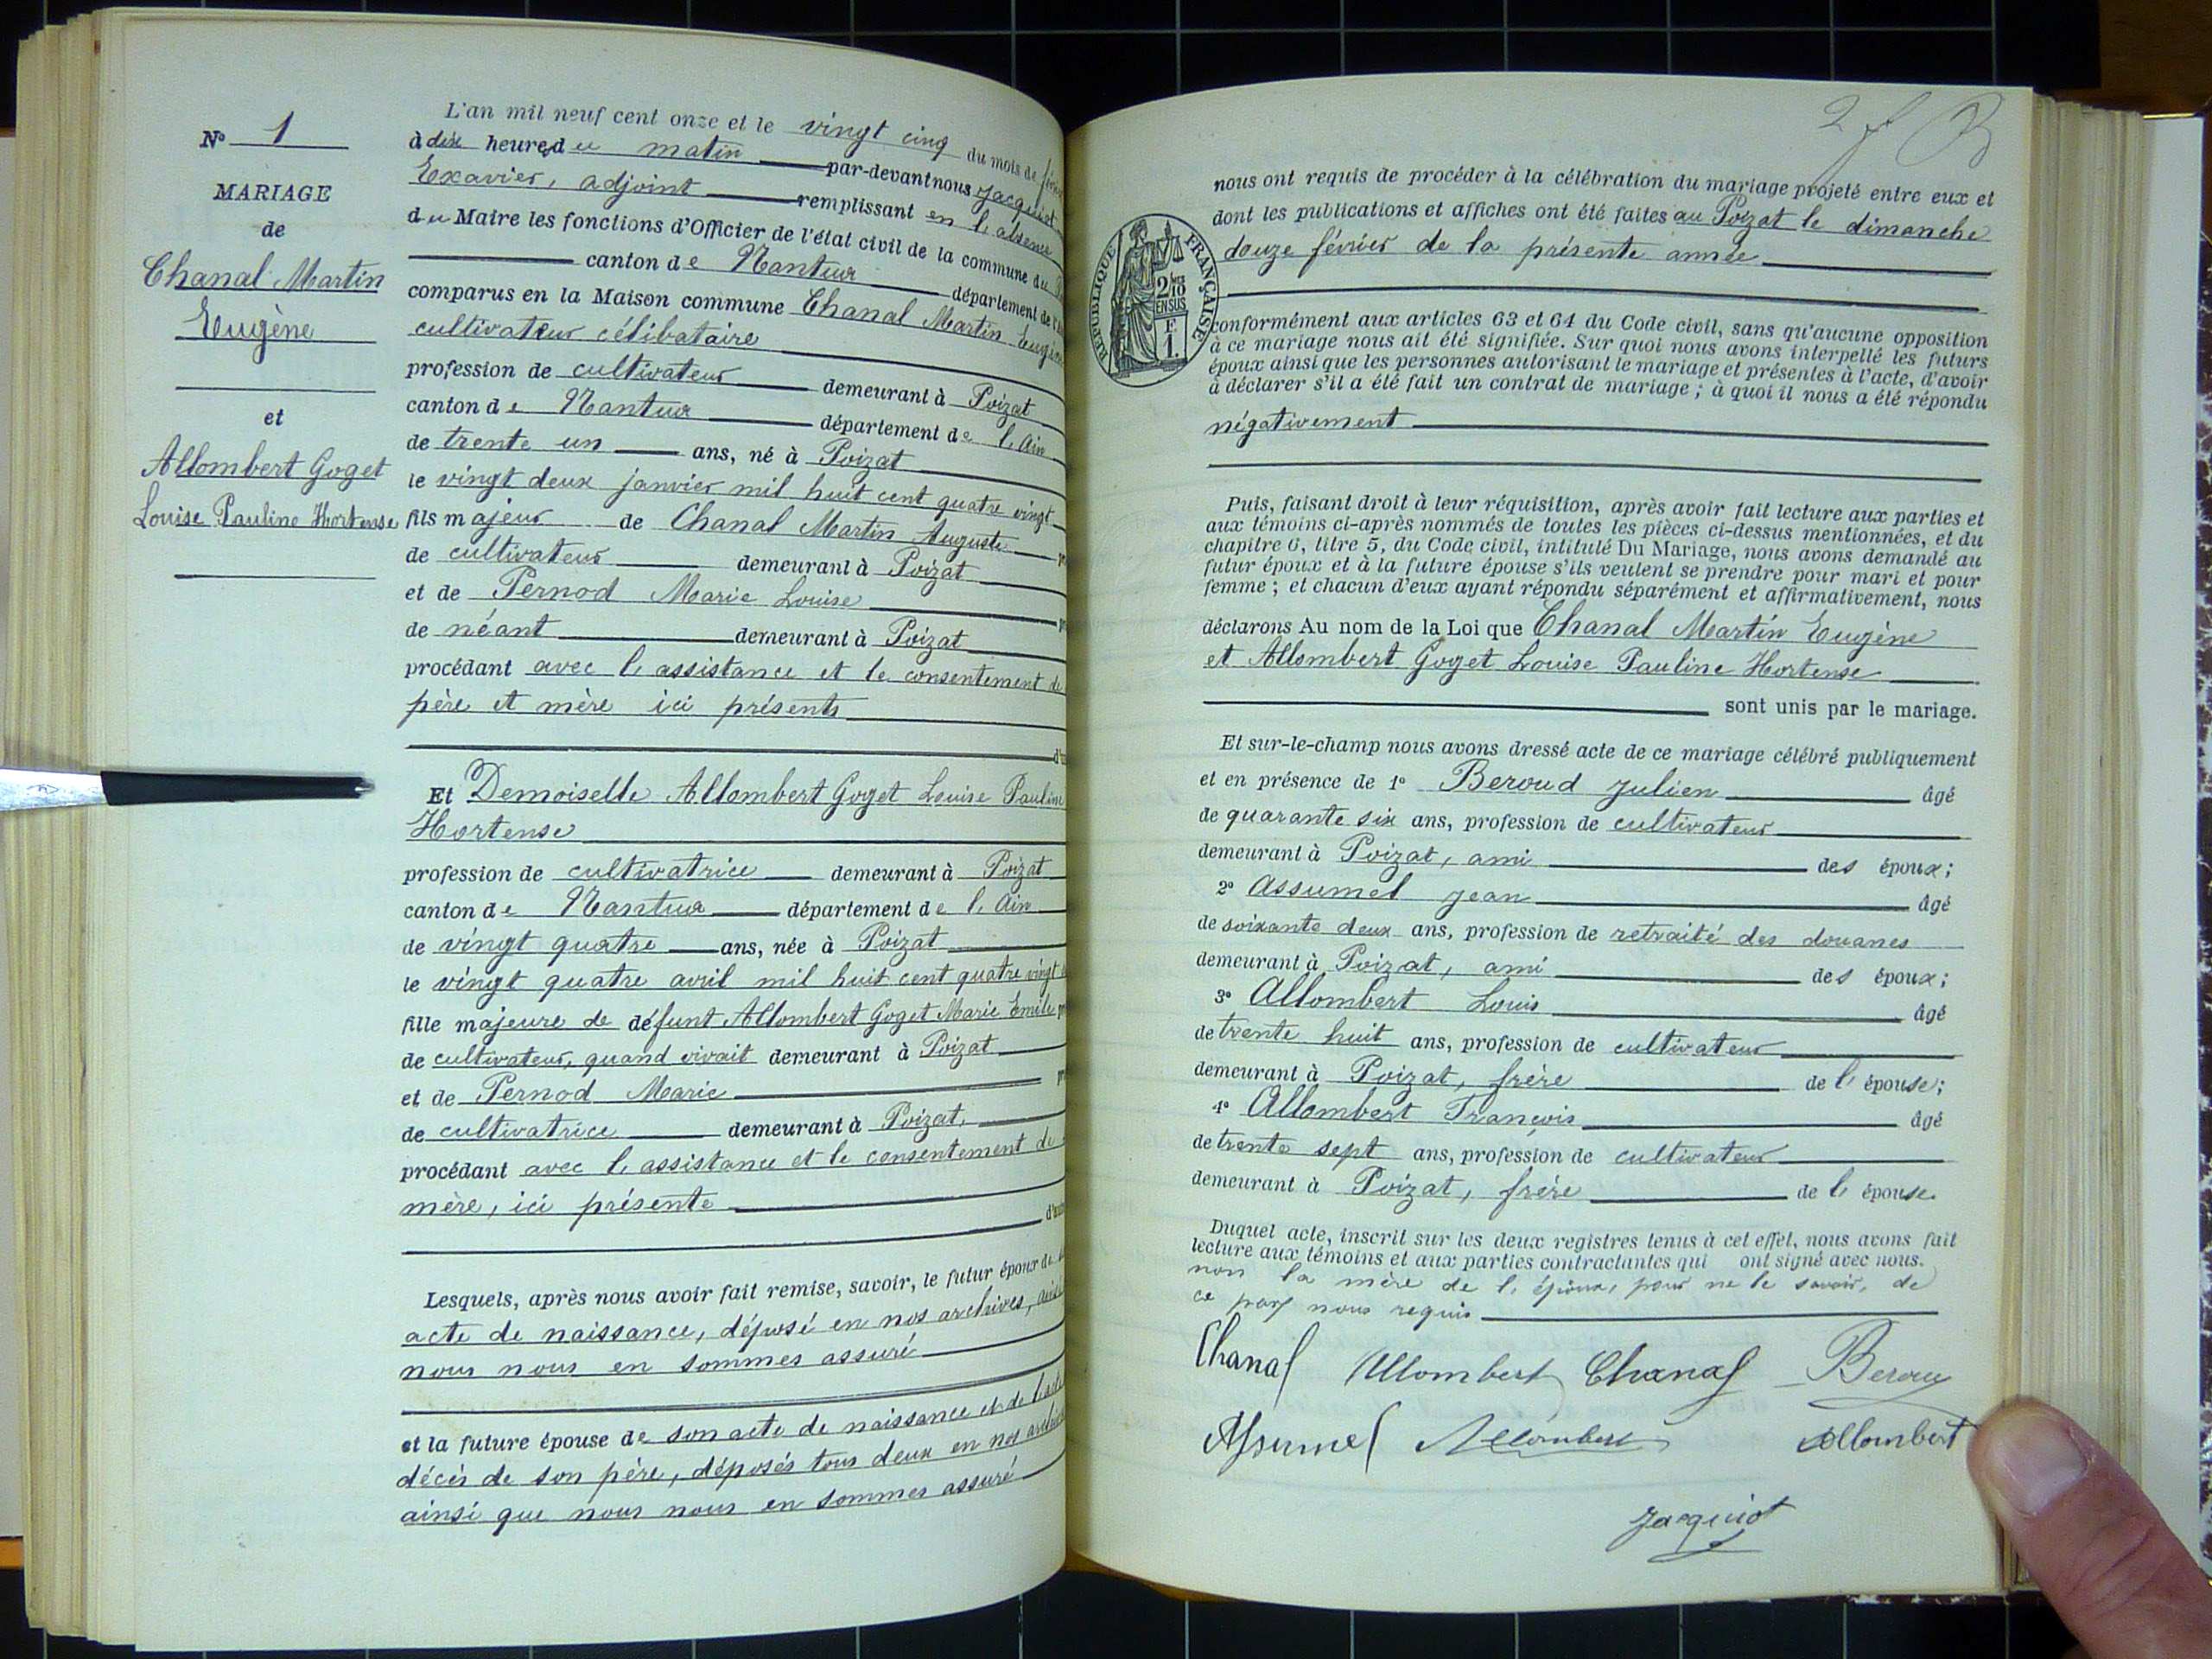 N° 1
MARIAGE
de
Chanal Martin
Eugène
et
Allombert Goget
Louise Pauline Hortense
L'an mil neuf cent onze et le vingt cinq du mois de
à dix heures du matin par-devant nous Jacquiot
Exavier, adjoint remplissant en l'absence
du Maire les fonctions d'Officier de l'état civil de la commune du
canton de Nantua département de
comparus en la Maison commune Chanal Martin Eugène
cultivateur célibataire
profession de cultivateur demeurant à Poizat
canton de Nantua département de l'Ain
de trente un ans, né à Poizat
le vingt deux janvier mil huit cent quatre vingt
fils majeur de Chanal Martin Auguste
de cultivateur demeurant à Poizat
et de Pernod Marie Louise
de néant demeurant à Poizat
procédant avec l'assistance et le consentement de
père et mère ici présents
Et Demoiselle Allombert Goget Louise Pauline
Hortense
profession de cultivatrice demeurant à Poizat
canton de Nantua département de l'Ain
de vingt quatre ans, née à Poizat
le vingt quatre avril mil huit cent quatre vingt
fille majeure de défunt Allombert Goget Marie Emile
de cultivateur, quand vivait demeurant à Poizat
et de Pernod Marie
de cultivatrice demeurant à Poizat,
procédant avec l'assistance et le consentement de
mère, ici présente
Lesquels, après nous avoir fait remise, savoir, le futur époux de
acte de naissance, déposé en nos archives,
nous nous en sommes assuré
et la future épouse de son acte de naissance et de
décès de son père, déposés tous deux en nos
ainsi que nous nous en sommes assuré
nous ont requis de procéder à la célébration du mariage projeté entre eux et
dont les publications et affiches ont été faites au Poizat le dimanche
douze février de la présente année
RÉPUBLIQUE FRANÇAISE
2/10
EN SUS
E
1.
conformément aux articles 63 et 64 du Code civil, sans qu'aucune opposition
à ce mariage nous ait été signifiée. Sur quoi nous avons interpellé les futurs
époux ainsi que les personnes autorisant le mariage et présentes à l'acte, d'avoir
à déclarer s'il a été fait un contrat de mariage ; à quoi il nous a été répondu
négativement
Puis, faisant droit à leur réquisition, après avoir fait lecture aux parties et
aux témoins ci-après nommés de toutes les pièces ci-dessus mentionnées, et du
chapitre 6, titre 5, du Code civil, intitulé Du Mariage, nous avons demandé au
futur époux et à la future épouse s'ils veulent se prendre pour mari et pour
femme ; et chacun d'eux ayant répondu séparément et affirmativement, nous
déclarons Au nom de la Loi que Chanal Martin Eugène
et Allombert Goget Louise Pauline Hortense
sont unis par le mariage.
Et sur-le-champ nous avons dressé acte de ce mariage célébré publiquement
et en présence de 1° Beroud Julien âgé
de quarante six ans, profession de cultivateur
demeurant à Poizat, ami des époux ;
2° Assumel Jean âgé
de soixante deux ans, profession de retraité des douanes
demeurant à Poizat, ami des époux ;
3° Allombert Louis âgé
de trente huit ans, profession de cultivateur
demeurant à Poizat, frère de l'épouse ;
4° Allombert François âgé
de trente sept ans, profession de cultivateur
demeurant à Poizat, frère de l'épouse.
Duquel acte, inscrit sur les deux registres tenus à cet effet, nous avons fait
lecture aux témoins et aux parties contractantes qui ont signé avec nous.
non la mère de l'époux, pour ne le savoir, de
ce par nous requis
Chanal Allombert Chanal Beroud
Assumel Allombert Allombert
Jacquiot